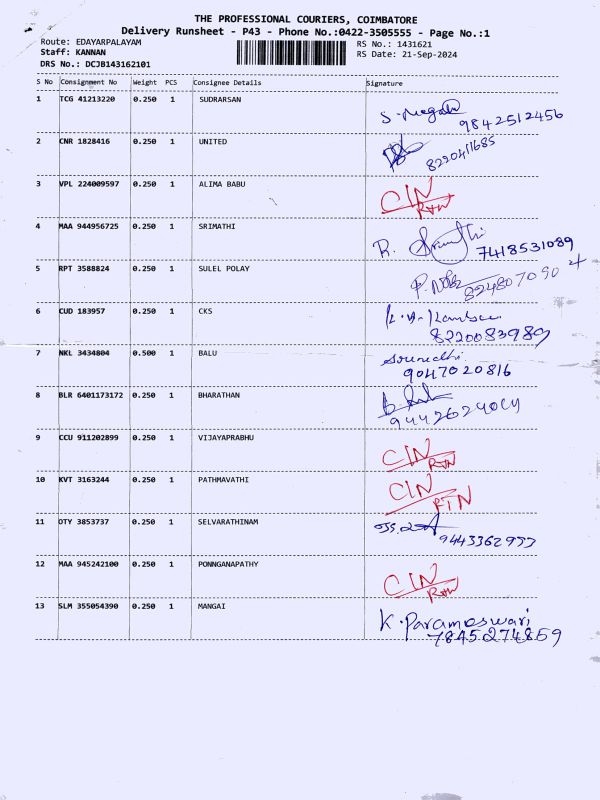 THE PROFESSIONAL COURIERS, COIMBATORE
Delivery Runsheet - P43 - Phone No.:0422-3505555 - Page No.:1
Route: EDAYARPALAYAM RS No.: 1431621
Staff: KANNAN RS Date: 21-Sep-2024
DRS No.: DCJB143162101
S No Consignment No Weight PCS Consignee Details Signature
1 TCG 41213220 0.250 1 SUDRARSAN
9842512456
2 CNR 1828416 0.250 1 UNITED
8220411685
3 VPL 224009597 0.250 1 ALIMA BABU CIN
RTN
4 MAA 944956725 0.250 1 SRIMATHI R.
7418531089
5 RPT 3588824 0.250 1 SULEL POLAY
8248070904
6 CUD 183957 0.250 1 CKS
8220083989
7 NKL 3434804 0.500 1 BALU
9047020816
8 BLR 6401173172 0.250 1 BHARATHAN
9 CCU 911202899 0.250 1 VIJAYAPRABHU CIN
RTN
10 KVT 3163244 0.250 1 PATHMAVATHI CIN
RTN
11 OTY 3853737 0.250 1 SELVARATHINAM
12 MAA 945242100 0.250 1 PONNGANAPATHY CIN
RTN
13 SLM 355054390 0.250 1 MANGAI K. Parameswari
7845274859